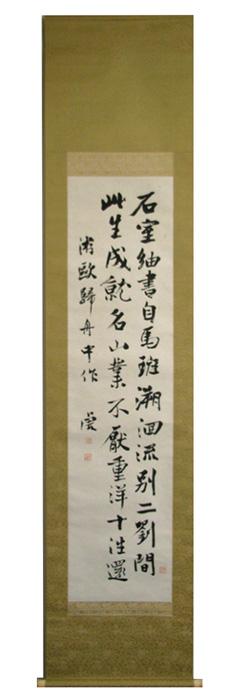 石室紬書自馬班溯洄流別二劉間
此生成就名山業不厭重洋十往還
游歐歸舟中作
虎